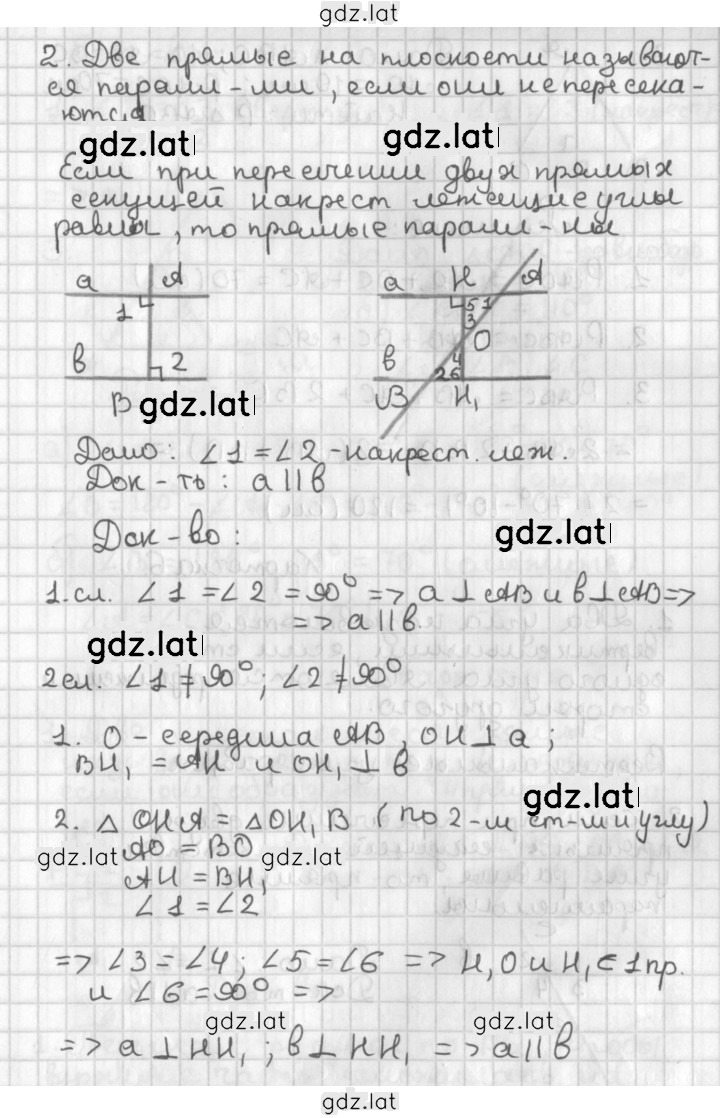 gdz.lat
2. Две прямые на плоскости называют-
ся паралл-ми, если они не пересека-
ются
gdz.lat
Если при пересечении двух прямых
секущей накрест лежащие углы
равны, то прямые паралл-ны
a A a H A
1 5 1
3
O
в 2 в 4
2 6
B gdz.lat B H₁
Дано: ∠1=∠2 -накрест. леж.
Док-ть: a||в
Док-во: gdz.lat
1.сл. ∠1=∠2=90° => a⊥AB и в⊥AB=>
=> a||в.
gdz.lat
2сл. ∠1≠90°; ∠2≠90°
1. O - середина AB, OH⊥a;
BH₁ = AH и OH₁⊥в
gdz.lat
2. △OHA = △OH₁B (по 2-м ст-ми и углу)
gdz.lat AO = BO gdz.lat
AH = BH₁
∠1=∠2
=> ∠3=∠4; ∠5=∠6 => H, O и H₁ ⊂ 1 пр.
и ∠6=90° =>
gdz.lat gdz.lat
=> a⊥HH₁; в⊥HH₁ => a||в
gdz.lat